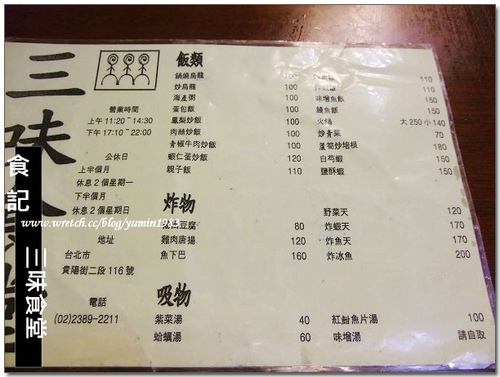 三味
食記
三味食堂
www.wretch.cc/blog/yumin1983
營業時間
上午 11:20 ~ 14:30
下午 17:10 ~ 22:00
公休日
上半個月
休息 2 個星期一
下半個月
休息 2 個星期日
地址
台北市
貴陽街二段 116 號
電話
(02)2389-2211
飯類
鍋燒烏龍 100
炒烏龍 100
海產粥 100
蛋包飯 100
鳳梨炒飯 100
肉絲炒飯 100
青椒牛肉炒飯 100
蝦仁蛋炒飯 100
親子飯 110
110
110
味噌魚飯 150
鰻魚飯 150
火鍋 大 250 小 140
炒青菜 70
蘆筍炒培根 180
白芍蝦 150
鹽酥蝦 150
炸物
豆腐 80
雞肉唐揚 120
魚下巴 160
野菜天 120
炸蝦天 170
炸魚天 170
炸冰魚 200
吸物
紫菜湯 40
蛤蠣湯 60
紅魽魚片湯 100
味增湯 請自取